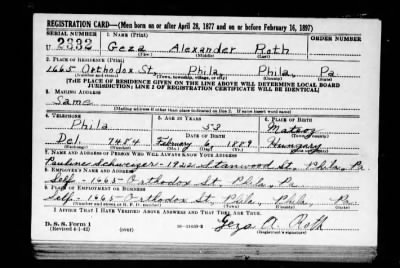 REGISTRATION CARD—(Men born on or after April 28, 1877 and on or before February 16, 1897)
SERIAL NUMBER 1. NAME (Print) ORDER NUMBER
U 2332 Geza Alexander Roth
(First) (Middle) (Last)
2. PLACE OF RESIDENCE (Print)
1665 Orthodox St, Phila, Phila, Pa
(Number and street) (Town, township, village, or city) (County) (State)
[THE PLACE OF RESIDENCE GIVEN ON THE LINE ABOVE WILL DETERMINE LOCAL BOARD
JURISDICTION; LINE 2 OF REGISTRATION CERTIFICATE WILL BE IDENTICAL]
3. MAILING ADDRESS
Same
[Mailing address if other than place indicated on line 2. If same insert word same]
4. TELEPHONE 5. AGE IN YEARS 6. PLACE OF BIRTH
Phila 53
DATE OF BIRTH
Del. 7484 February 6 1889 Hungary
7. NAME AND ADDRESS OF PERSON WHO WILL ALWAYS KNOW YOUR ADDRESS
Pauline Schweiger - Stanwood St., Phila, Pa.
8. EMPLOYER'S NAME AND ADDRESS
Self - 1665 Orthodox St, Phila, Pa
9. PLACE OF EMPLOYMENT OR BUSINESS
Self - 1665 Orthodox St, Phila, Phila, Pa.
(Number and street or R. F. D. number) (Town) (County) (State)
I AFFIRM THAT I HAVE VERIFIED ABOVE ANSWERS AND THAT THEY ARE TRUE.
D. S. S. Form 1
(Revised 4-1-42) (over)
Geza A. Roth
(Registrant's signature)